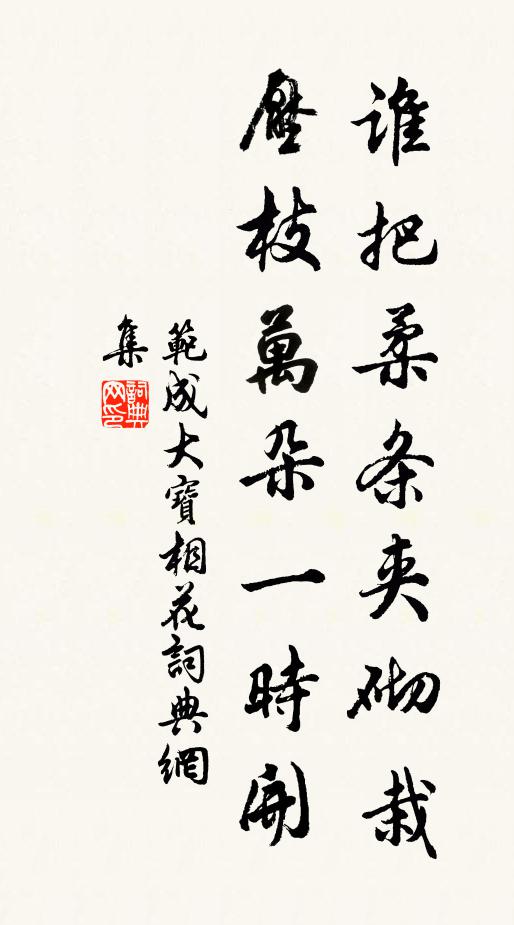 誰把柔条夾砌栽
壓枝萬朵一時開
範成大寶相花詞典網
集
詞典
网印